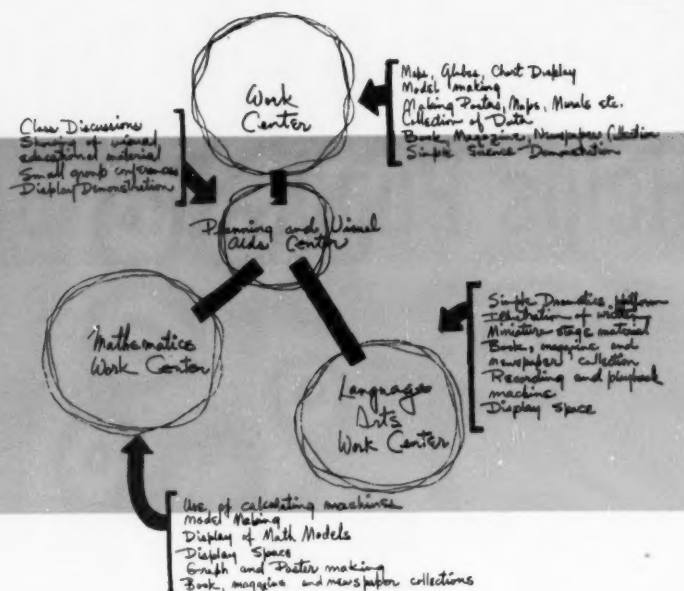 Work
Center
Maps, Globes, Chart Display
Model making
Making Posters, Maps, Murals etc.
Collection of Data
Book, Magazine, Newspapers Collection
Simple Science Demonstration
Class Discussions
Sharing of visual
educational material
Small group conferences
Display Demonstration
Planning and Visual
Aids Center
Mathematics
Work Center
Language
Arts
Work Center
Simple Dramatics platform
Illustration of writing
Miniature stage material
Book, magazine and
newspaper collection
Recording and playback
machine
Display Space
Use of calculating machines
Model Making
Display of Math Models
Display Space
Graph and Poster making
Book, magazine and newspaper collections